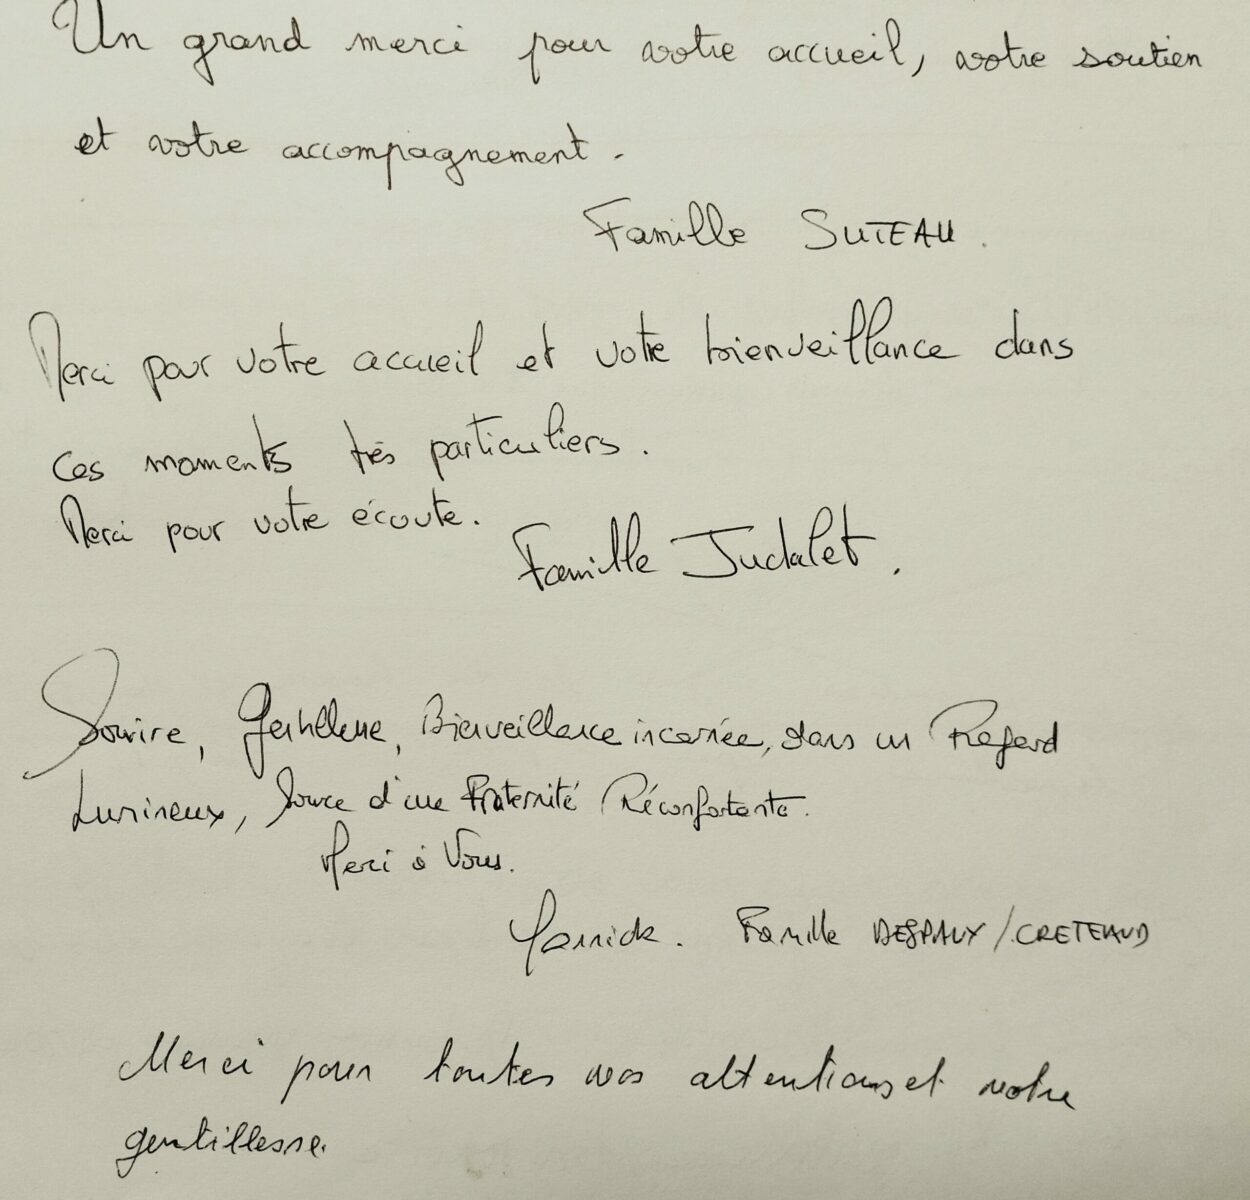 Un grand merci pour votre accueil, votre soutien
et votre accompagnement.
Famille SUTEAU.
Merci pour votre accueil et votre bienveillance dans
ces moments très particuliers.
Merci pour votre écoute.
Famille Judalet.
Sourire, Gentillesse, Bienveillance incarnée, dans un Regard
Lumineux, Source d'une Fraternité Réconfortante.
Merci à Vous.
Yannick. Famille DESPAUX / CRETEAUD
Merci pour toutes vos attentions et votre
gentillesse.